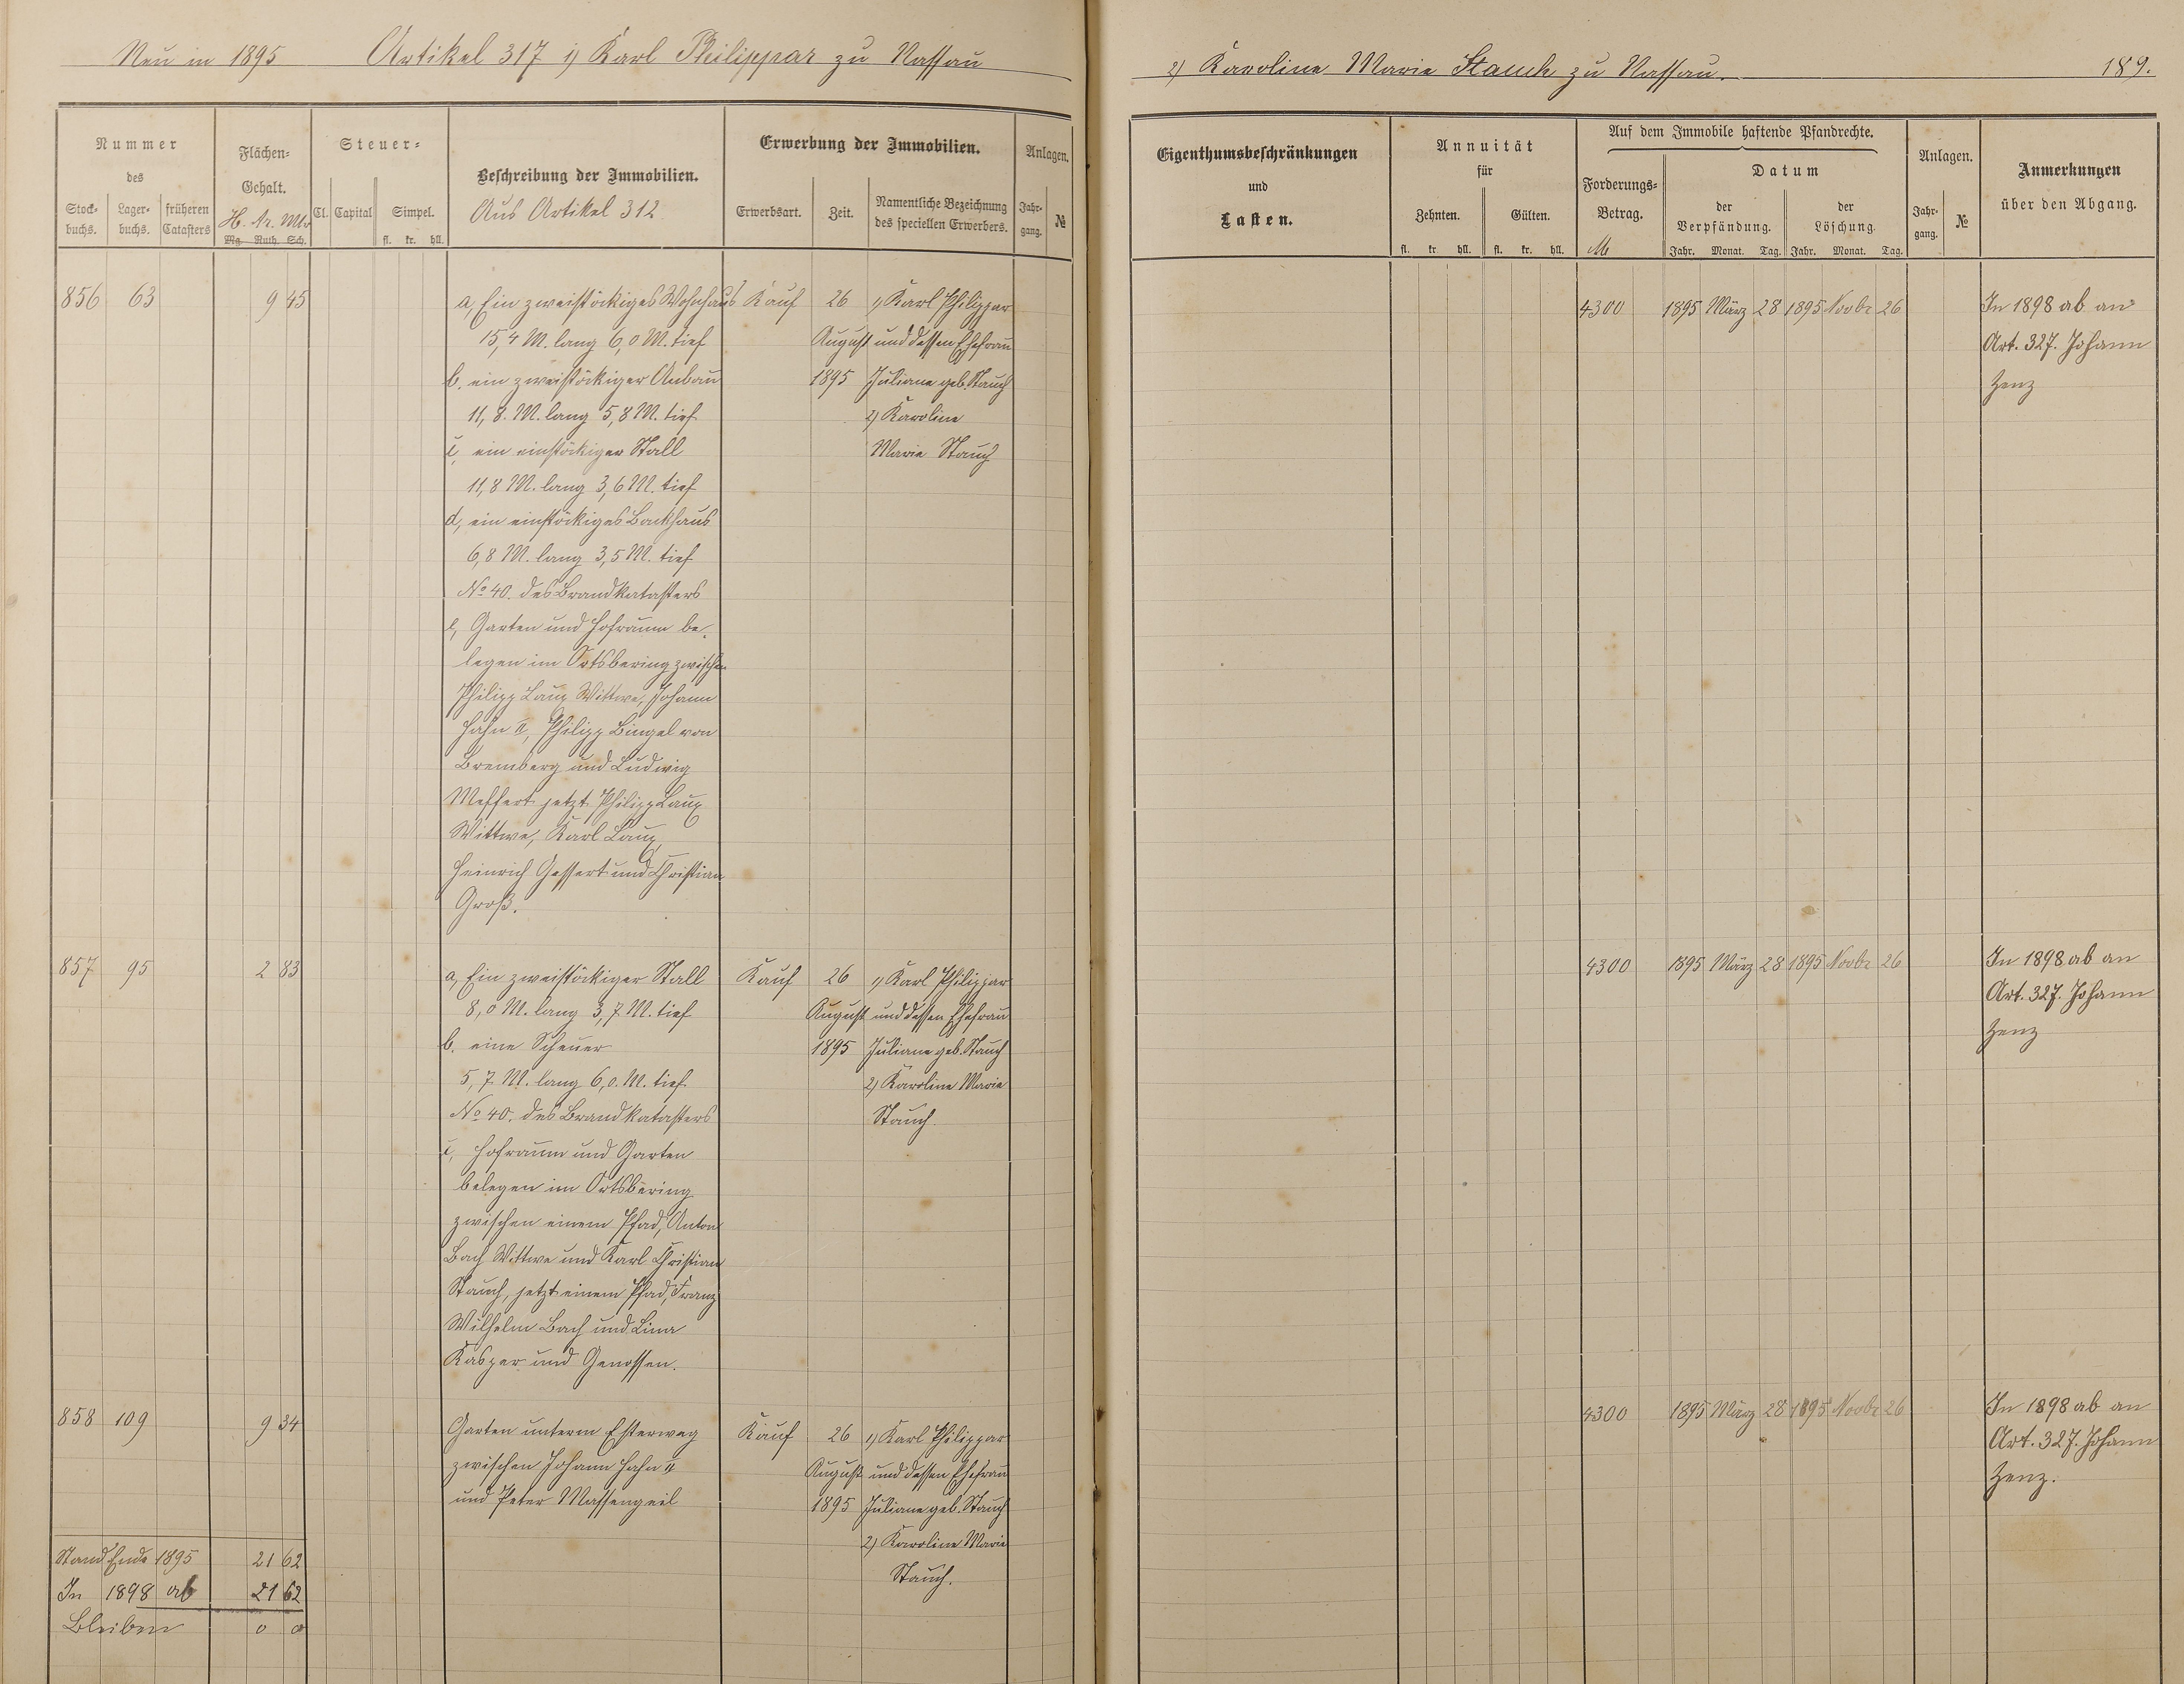 Neu in 1895 Artikel 317 1) Karl Philippar zu Nassau
2) Karoline Marie Stauch zu Nassau. 189.
Nummer
des
Stock-
buchs.
Lager-
buchs.
früheren
Catasters
Flächen-
Gehalt.
H. Ar. Mtr
Mg. Ruth. Sch.
Steuer-
Cl. Capital Simpel.
fl. kr. hll.
Beschreibung der Immobilien.
Aus Artikel 312
Erwerbung der Immobilien.
Erwerbsart. Zeit.
Namentliche Bezeichnung
des speciellen Erwerbers.
Anlagen.
Jahr-
gang.
№
Eigenthumsbeschränkungen
und
Lasten.
Annuität
für
Zehnten. Gülten.
fl. kr. hll. fl. kr. hll.
Auf dem Immobile haftende Pfandrechte.
Forderungs-
Betrag.
M
Datum
der
Verpfändung.
Jahr. Monat. Tag.
der
Löschung
Jahr. Monat. Tag.
Anlagen.
Jahr-
gang.
№
Anmerkungen
über den Abgang.
856 63 9 45
a, Ein zweistöckiges Wohnhaus
15,4 M. lang 6,0 M. tief
b. ein zweistöckiger Anbau
11,8. M. lang 5,8 M. tief
c, ein einstöckiger Stall
11,8 M. lang 3,6 M. tief
d, ein einstöckiges Backhaus
6,8 M. lang 3,5 M. tief
No 40. des Brandkatasters
e, Garten und Hofraum be-
legen im Ortsbering zwischen
Philipp Laux Wittwe, Johann
Hahn II, Philipp Bingel von
Bremberg und Ludwig
Meffert jetzt Philipp Laux
Wittwe, Karl Laux,
Heinrich Gessert und Christian
Groß.
Kauf
26
August
1895
1) Karl Philippar
und dessen Ehefrau
Juliane geb. Stauch
2) Karoline
Marie Stauch
4300 1895 März 28 1895 Novbr 26
In 1898 ab an
Art. 327. Johann
Zenz
857 95 2 83
a, Ein zweistöckiger Stall
8,0 M. lang 3,7 M. tief
b. eine Scheuer
5,7 M. lang 6,0. M. tief.
No 40. des Brandkatasters
c, Hofraum und Garten
belegen im Ortsbering
zwischen einem Pfad, Anton
Bach Wittwe und Karl Christian
Stauch, jetzt einem Pfad, Franz
Wilhelm Bach und Lina
Kasper und Genossen.
Kauf
26
August
1895
1) Karl Philippar
und dessen Ehefrau
Juliane geb. Stauch
2) Karoline Marie
Stauch
4300 1895 März 28 1895 Novbr 26
In 1898 ab an
Art. 327. Johann
Zenz
858 109 9 34
Garten unterm Esterweg
zwischen Johann Hahn II
und Peter Massengeil
Kauf
26
August
1895
1) Karl Philippar
und dessen Ehefrau
Juliane geb. Stauch
2) Karoline Marie
Stauch.
4300 1895 März 28 1895 Novbr 26
In 1898 ab an
Art. 327. Johann
Zenz.
Stand Ende 1895 21 62
In 1898 ab 21 62
Bleiben 0 0